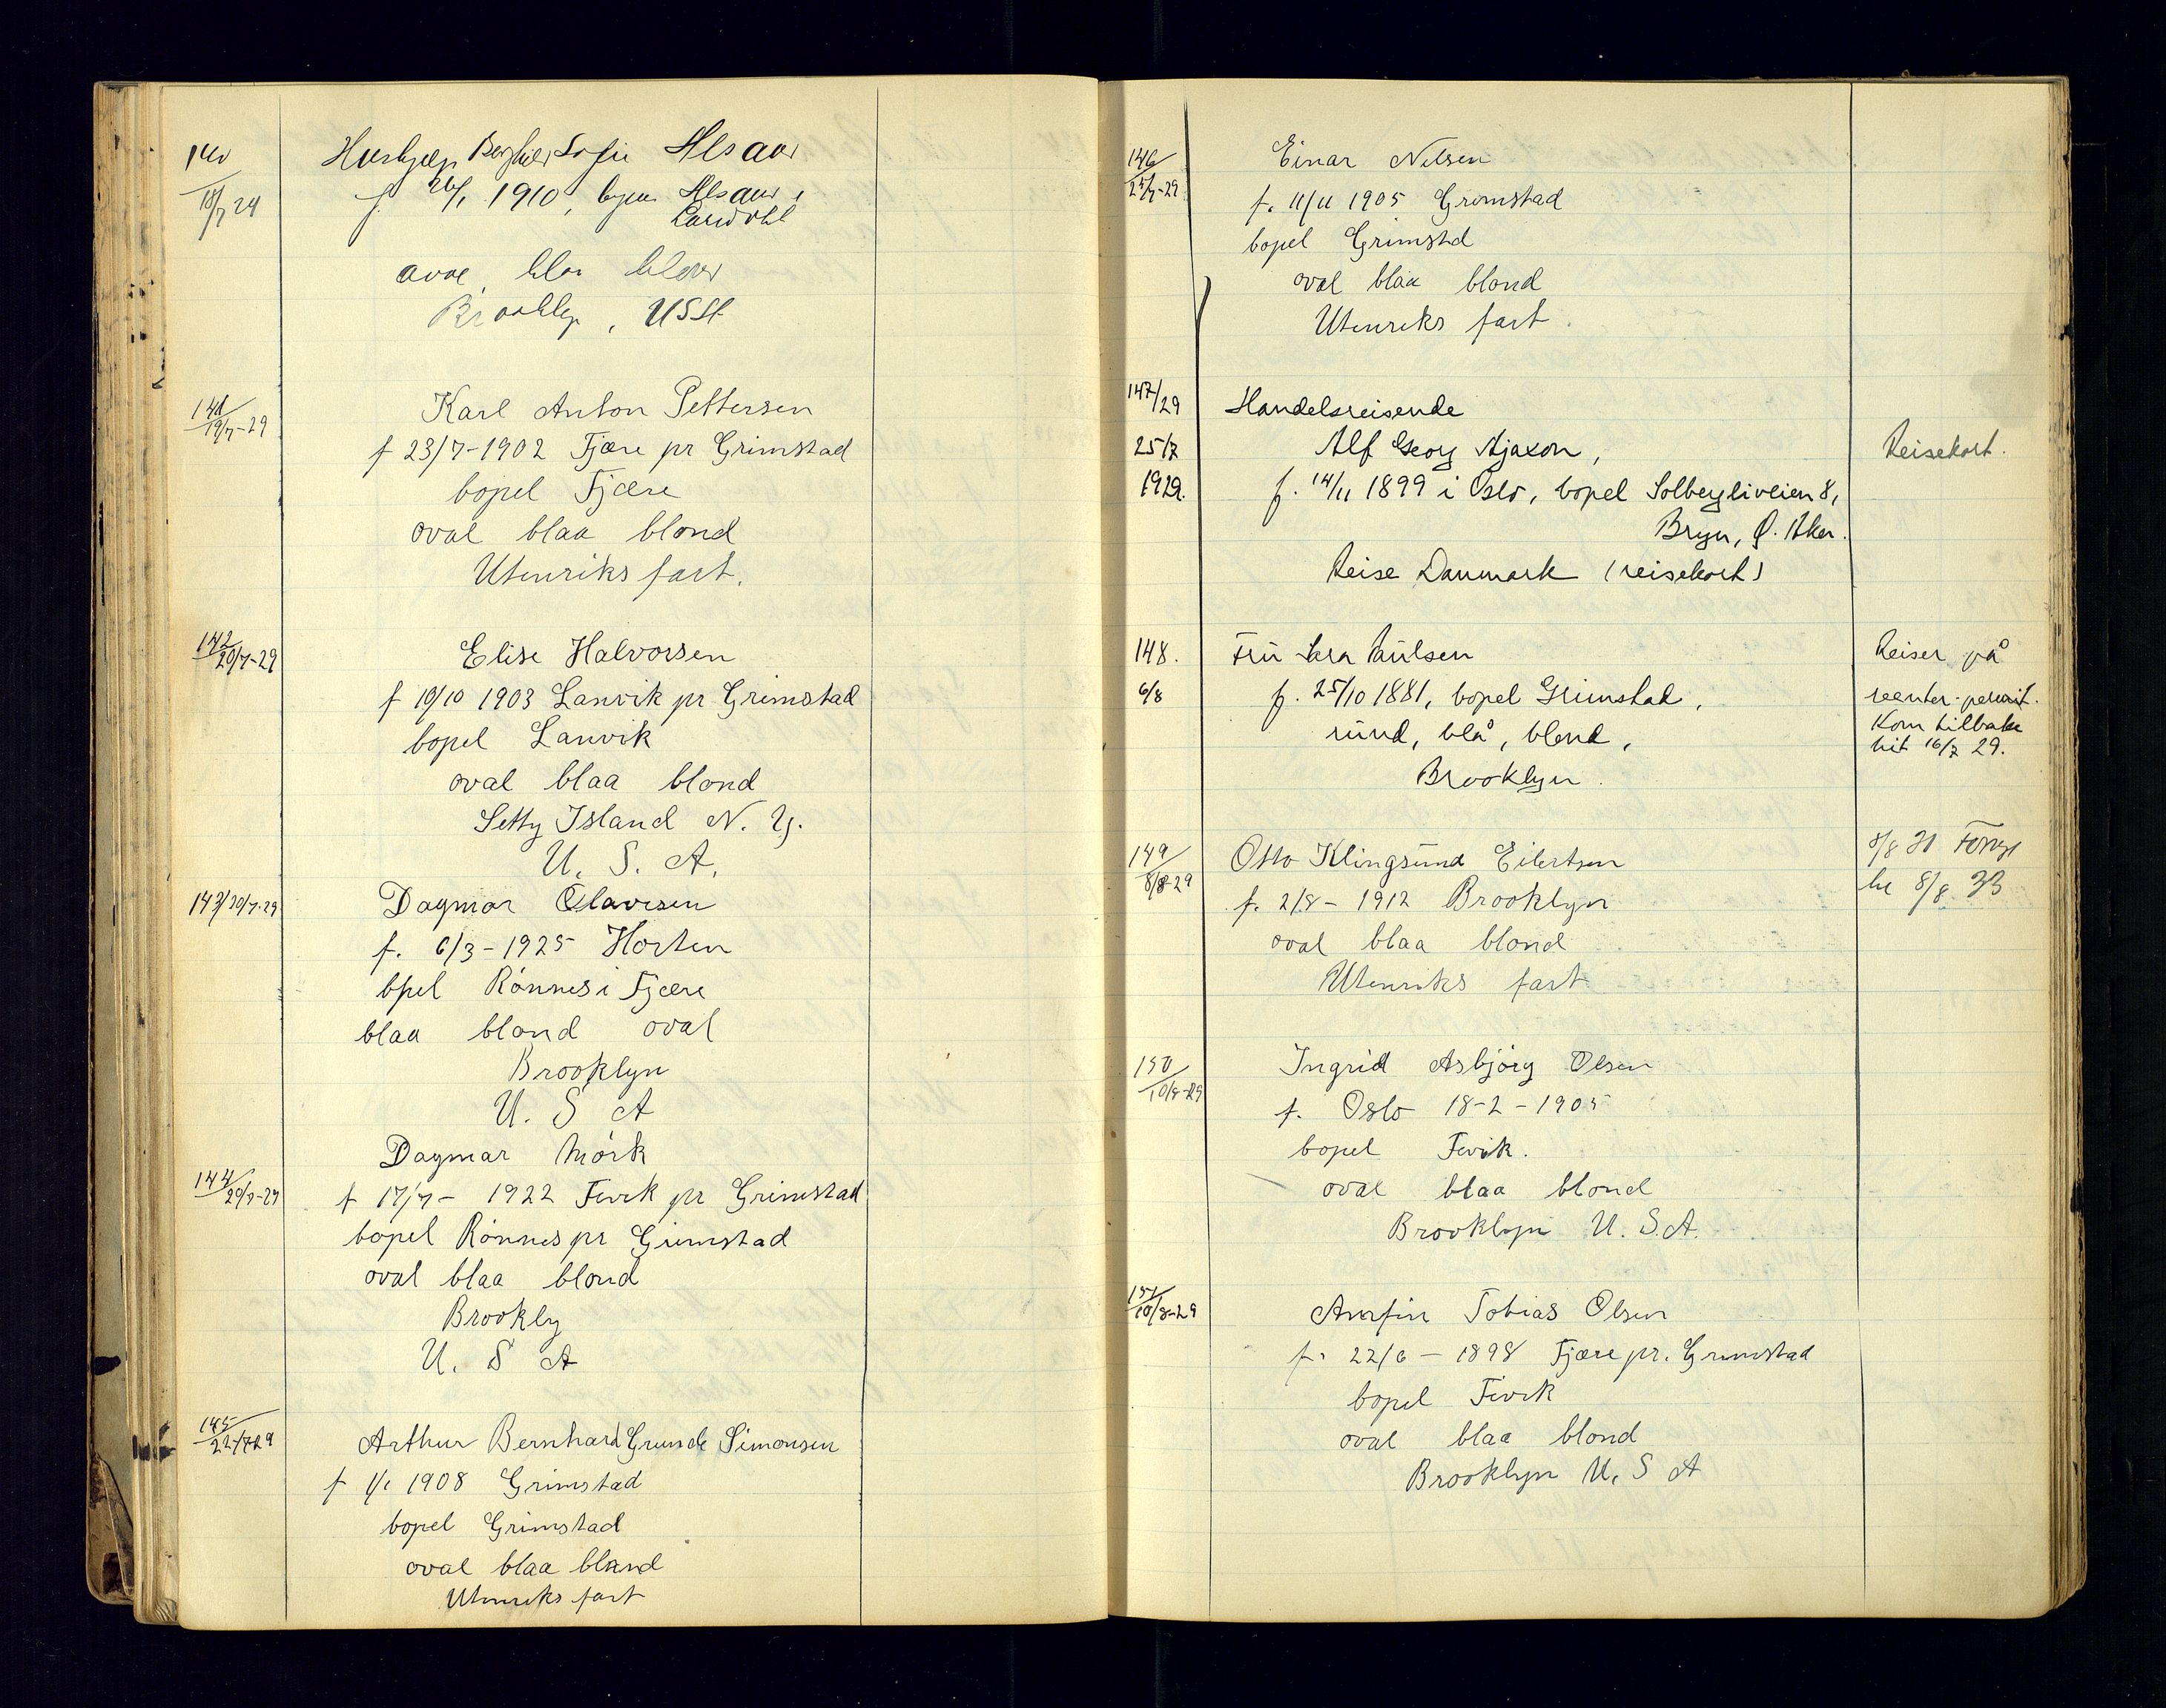 140
18/7 29
Hushjelp Borghild Sofie Alsaur
f. 26/1 1910, bopel Alsaur i
Landvik
oval, blå blond
Brooklyn, USA
141/19/7-29
Karl Anton Pettersen
f 23/7-1902 Fjære pr Grimstad
bopel Fjære
oval blaa blond
Utenriks fart.
142/20/7-29
Elise Halvorsen
f 19/10 1903 Lanvik pr Grimstad
bopel Lanvik
oval blaa blond
Setty Island N. Y.
U. S. A.
143/20/7-29
Dagmar Olavesen
f. 6/3-1925 Horten
bpel Rønnes i Fjære
blaa blond oval
Brooklyn
U. S A
144/20/7-29
Dagmar Mørk
f 17/7- 1922 Fevik pr Grimstad
bopel Rønnes pr Grimstad
oval blaa blond
Brookly
U. S A
145/22/7-29
Arthur Bernhard Grunde Simonsen
f 1/1 1908 Grimstad
bopel Grimstad
oval blaa blond
Utenriks fart
146/25/7-29
Einar Nilsen
f. 11/11 1905 Grimstad
bopel Grimstd
oval blaa blond
Utenriks fart.
147/29
25/7
1929.
Handelsreisende
Alf Georg Ajaxon,
f. 14/11 1899 i Oslo, bopel Solbergliveien 8,
Bryn, Ø. Aker.
Reise Danmark (reisekort)
Reisekort.
148.
6/8
Fru Lea Paulsen
f. 25/10 1881, bopel Grimstad,
rund, blå, blond,
Brooklyn.
Reiser på
reenter-permit.
Kom tilbake
hit 16/7 29.
149/8/8-29
Otto Klingsund Eilertsen
f. 2/8- 1912 Brooklyn
oval blaa blond
Utenriks fart
8/8 31 Forny
til 8/8 33
150/10/8-29
Ingrid Asbjørg Olsen
f. Oslo 18-2-1905
bopel Fevik.
oval blaa blond
Brooklyn U. S.A.
151/10/8-29
Arnfin Tobias Olsen
f. 22/6 - 1898 Fjære pr. Grimstad
bopel Fevik
oval blaa blond
Brooklyn U. S A